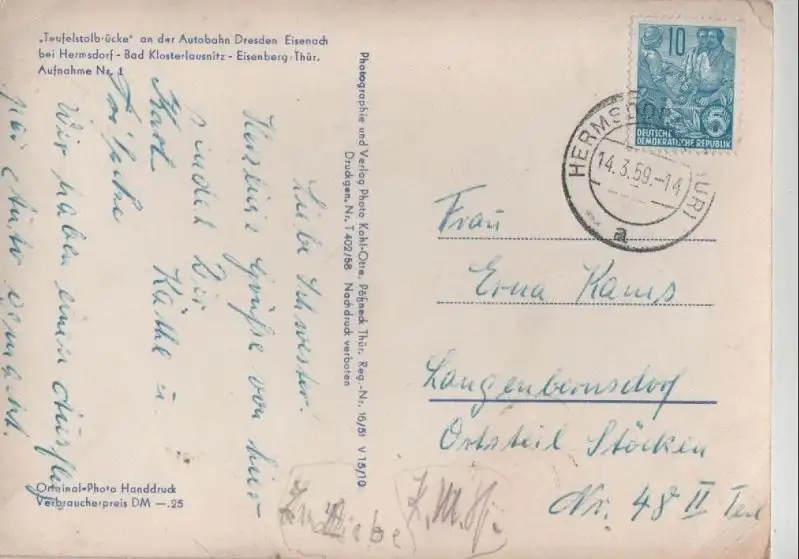 „Teufelstalbrücke" an der Autobahn Dresden Eisenach
bei Hermsdorf - Bad Klosterlausnitz - Eisenberg/Thür.
Aufnahme Nr. 1
Liebe Schwester!
Herzliche Grüße von hier
sendet Dir
Käthe u.
Karl
Wir haben einen Ausflug
per Auto gemacht.
Original-Photo Handdruck
Verbraucherpreis DM —.25
Photographie und Verlag Photo Kohl-Otte, Pößneck Thür. Reg.-Nr. 16/51 V 15/10
Druckgen. Nr. T 402/58 Nachdruck verboten
10
DEUTSCHE
DEMOKRATISCHE REPUBLIK
HERMSDORF (THÜR)
14.3.59.-14
a
Frau
Erna Kams
Langenbernsdorf
Ortsteil Stöcken
Nr. 48 II Teil